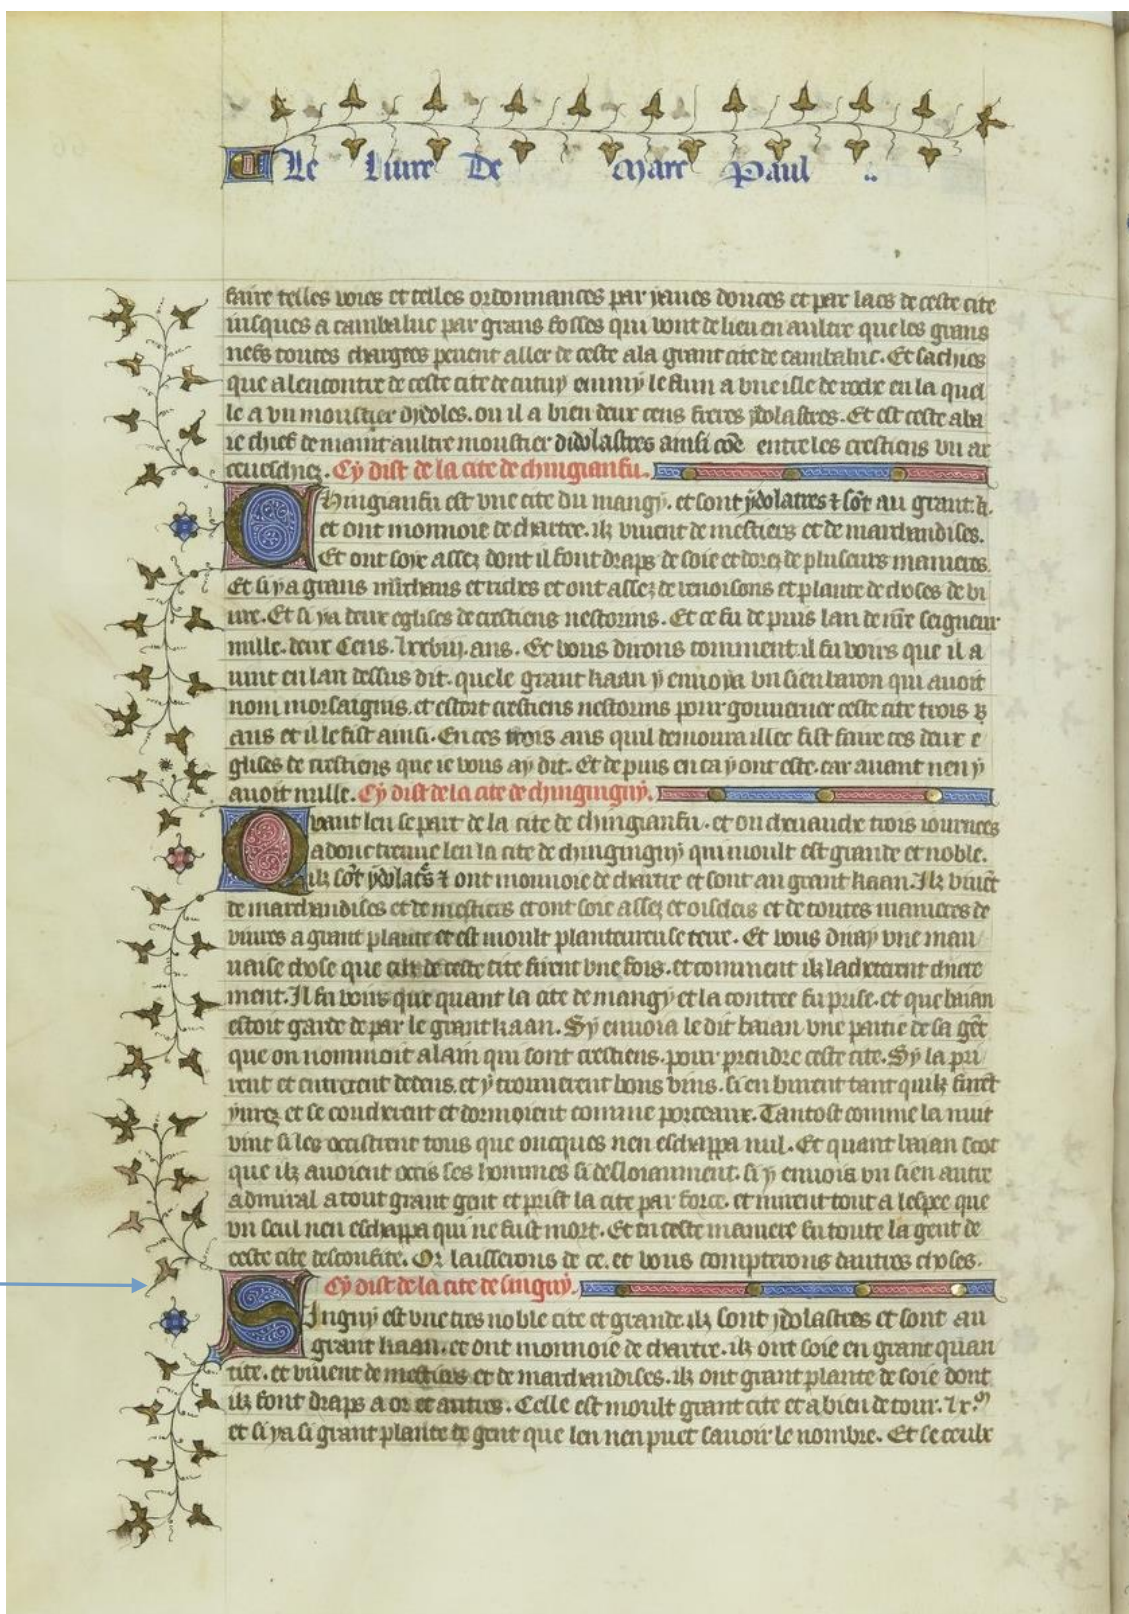 Le Liure De Marc Paul
faire telles voies et telles ordonnances par yaues douces et par lacs de ceste cite
iusques a cambaluc par grans fosses qui vont de lieu en aultre que les grans
nefs toutes chargees peuent aller de ceste a la grant cite de cambaluc. Et sachies
que a lencontre de ceste cite de cuiuy enmy le flun a vne isle de roche en la quel
le a vn moustier dydoles. ou il a bien deux cens freres ydolastres. Et est ceste aba
ie chief de maint aultre moustier didolastres ainsi cõe entre les crestiens vn ar
ceueschiez. Cy dist de la cite de chingianfu.
Chingianfu est vne cite du mangy. et sont ydolatres ⁊ sõt au grant k.
et ont monnoie de chartre. ilz viuent de mestiers et de marchandises.
Et ont soye assez dont il font draps de soie et dorez de pluseurs manieres.
Et si ya grans m̃chans et riches et ont assez de venoisons et plante de choses de vi
ure. Et si ya deux eglises de crestiens nestorins. Et ce fu de puis lan de nr̃e seigneur
mille. deux Cens. lxxviij. ans. Et vous dirons comment. il fu voirs que il a
uint en lan dessus dit. que le grant kaan y enuoya vn sien baron qui auoit
nom morsargins. et estoit crestiens nestorins pour gouuerner ceste cite trois
ans et il le fist ainsi. En ces trois ans quil demoura illec fist faire ces deux e
glises de crestiens que ie vous ay dit. Et de puis en ca y ont este. car auant nen y
auoit nulle. Cy dist de la cite de chinginguy.
Quant len se part de la cite de chingianfu. et on cheuauche trois iournees
adonc treuue len la cite de chinginguy qui moult est grande et noble.
ilz sõt ydolat̃s ⁊ ont monnoie de chartre et sont au grant kaan. Ilz viuẽt
de marchandises et de mestiers et ont soie assez et oiseleis et de toutes manieres de
viures a grant plante et est moult planteureuse terre. Et vous diray vne mau
uaise chose que cilz de ceste cite firent vne fois. et comment ilz lacheterent chiere
ment. Il fu voirs que quant la cite de mangy et la contree fu prise. et que baian
estoit garde de par le grant kaan. Sy enuoia le dit baian vne partie de sa gẽt
que on nommoit alain qui sont crestiens. pour prendre ceste cite. Sy la pri
rent et entrerent dedens. et y trouuerent bons vins. si en burent tant quilz furẽt
yures et se coucherent et dormoient comme porceaux. Tantost comme la nuit
vint si les occistrent tous que oncques nen eschappa nul. Et quant baian scot
que ilz auoient occis ses hommes si desloiaument. si y enuoia vn sien autre
admiral a tout grant gent et prist la cite par force. et mirent tout a lespee que
vn seul nen eschappa qui ne fust mort. Et en ceste maniere fu toute la gent de
ceste cite desconfite. Or laisserons de ce. et vous compterons dautres choses.
Cy dist de la cite de singuy.
Singuy est vne tres noble cite et grande. ilz sont ydolastres et sont au
grant kaan. et ont monnoie de chartre. ilz ont soie en grant quan
tite. et viuent de mestiers et de marchandises. ilz ont grant plante de soie dont
ilz font draps a or et autres. Celle est moult grant cite et a bien de tour. lx.
et si ya si grant plante de gent que len nen puet sauoir le nombre. Et se ceulx